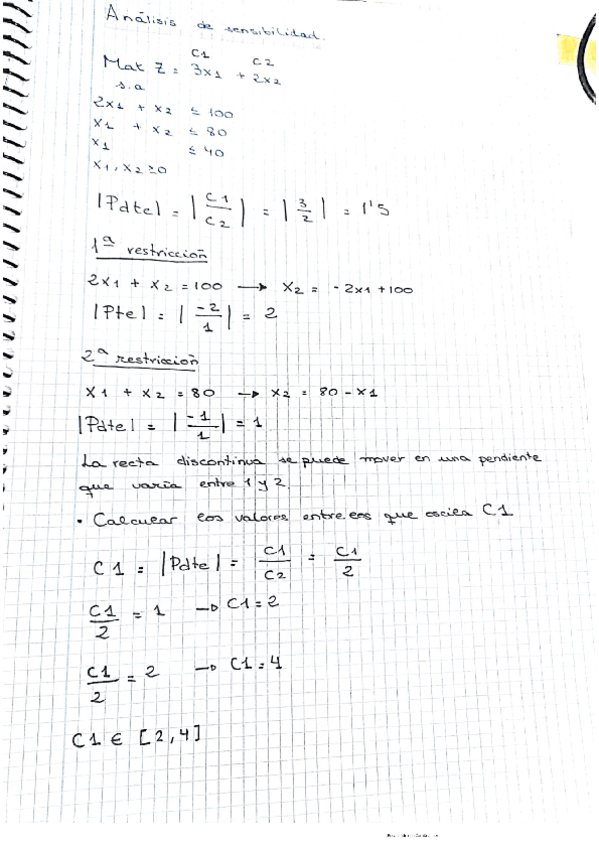 Análisis de sensibilidad.
C1 C2
Max Z = 3x1 + 2x2
s.a
2x1 + x2 ≤ 100
x1 + x2 ≤ 80
x1 ≤ 40
x1, x2 ≥ 0
|Pdte| = |C1/C2| = |3/2| = 1'5
1ª restricción
2x1 + x2 = 100 → x2 = -2x1 + 100
|Pte| = |-2/1| = 2
2ª restricción
x1 + x2 = 80 → x2 = 80 - x1
|Pdte| = |-1/1| = 1
La recta discontinua se puede mover en una pendiente
que varía entre 1 y 2
• Calcular los valores entre los que oscila C1
C1 = |Pdte| = C1/C2 = C1/2
C1/2 = 1 → C1 = 2
C1/2 = 2 → C1 = 4
C1 ∈ [2,4]